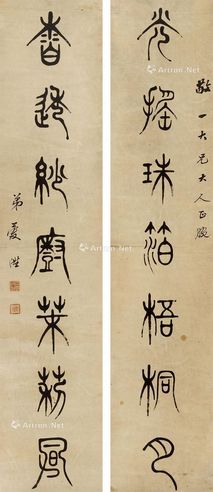 敬一大兄大人正腕
光搖珠箔梧桐月
香透紗廚茉莉風
弟夏
Artron.Net
Artron.Net
Artron.Net
Artron.Net